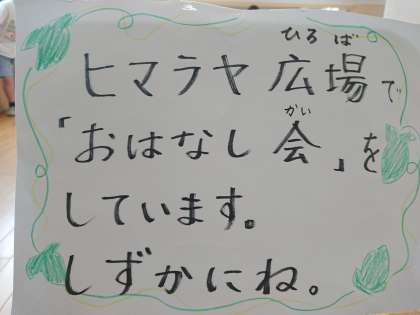 ヒマラヤ広場で
ひろば
「おはなし会」を
かい
しています。
しずかにね。